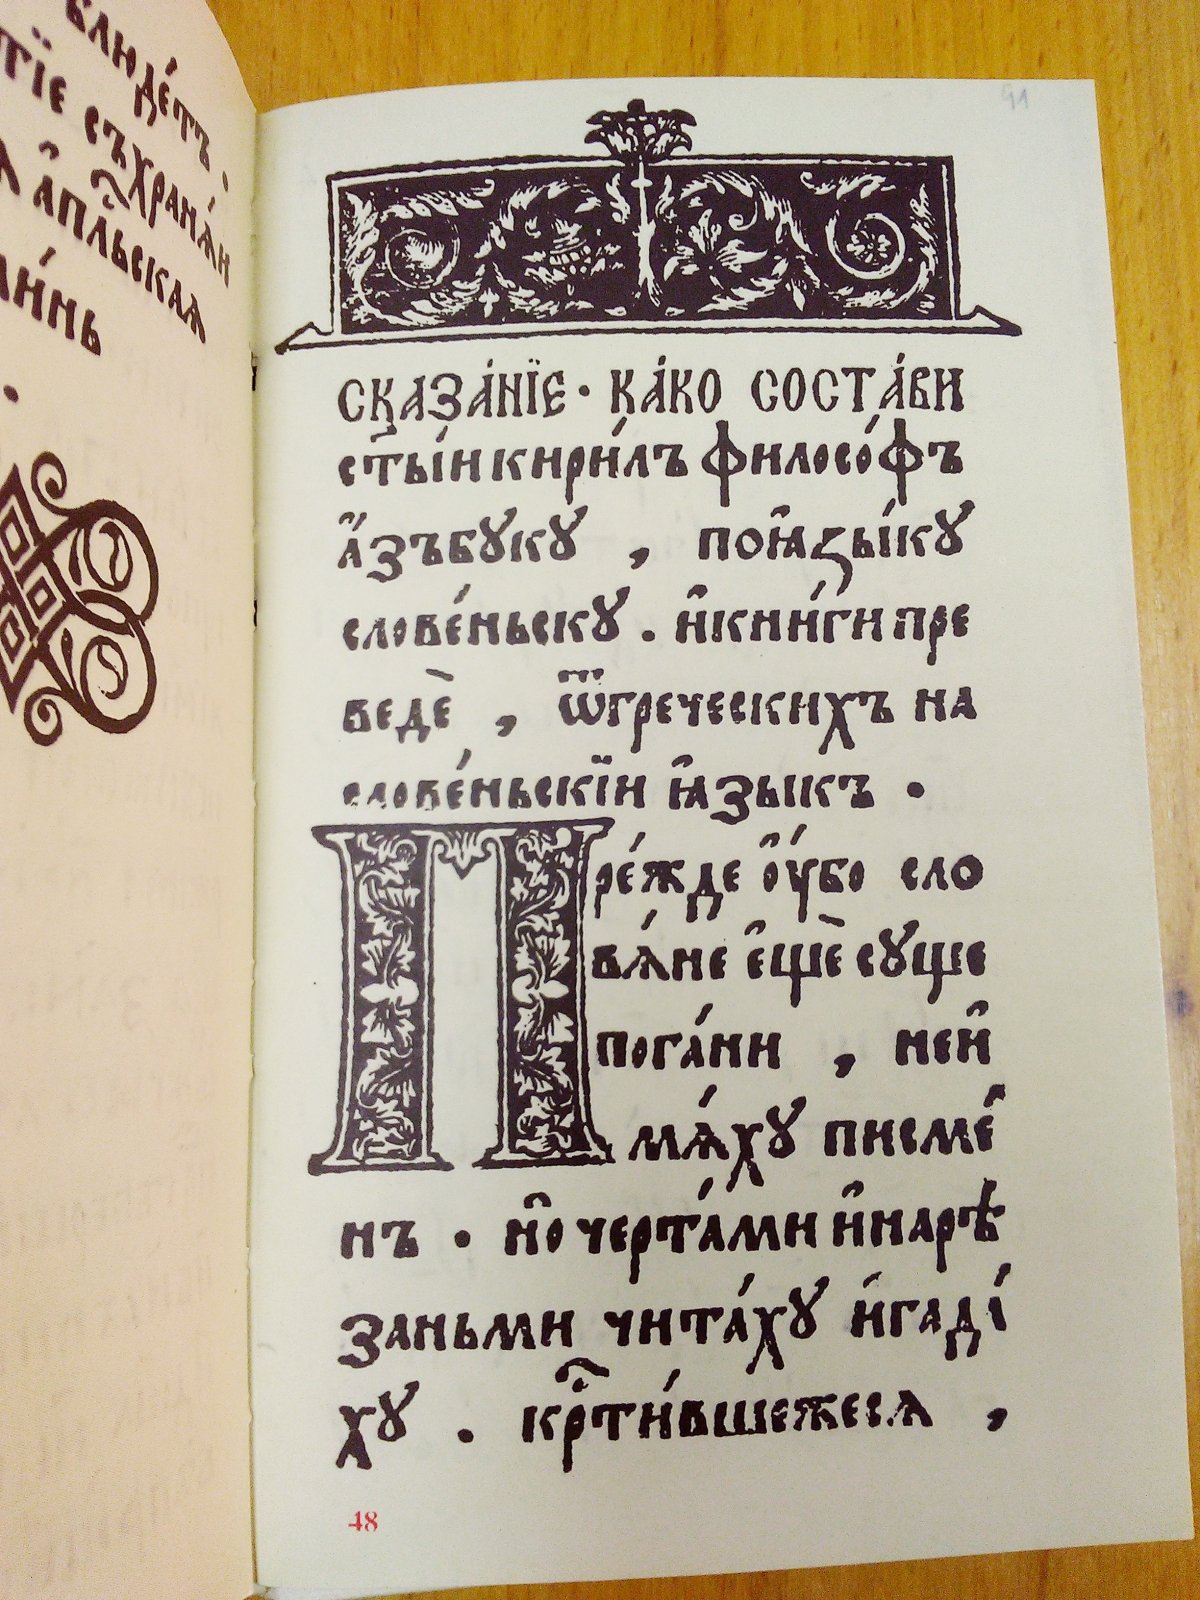 блюде́тъ.
тїе съхраня́и
а҆п҇льская
ми́нь
СКАЗА́НЇЕ · КА́КО СОСТА́ВИ
ст҃ы́и кири́лъ филосо́фъ
а҆́зъбꙋкꙋ́ , поꙗ҆зы́кꙋ
слове́ньскꙋ . и҆кни́ги пре
ведѐ , ѿгреческихъ на
слове́ньскїи ꙗ҆зыкъ .
Пре́жде ѹ҆́бо сло
вѧ́не е҆щѐ сꙋще
пога́ни , неи҆
мѧ́хꙋ писме҆
нъ . но҆ черта́ми и҆нарѣ́
заньми чита́хꙋ и҆гадї́
хꙋ . кр҇ти́вшежесѧ ,
48
91